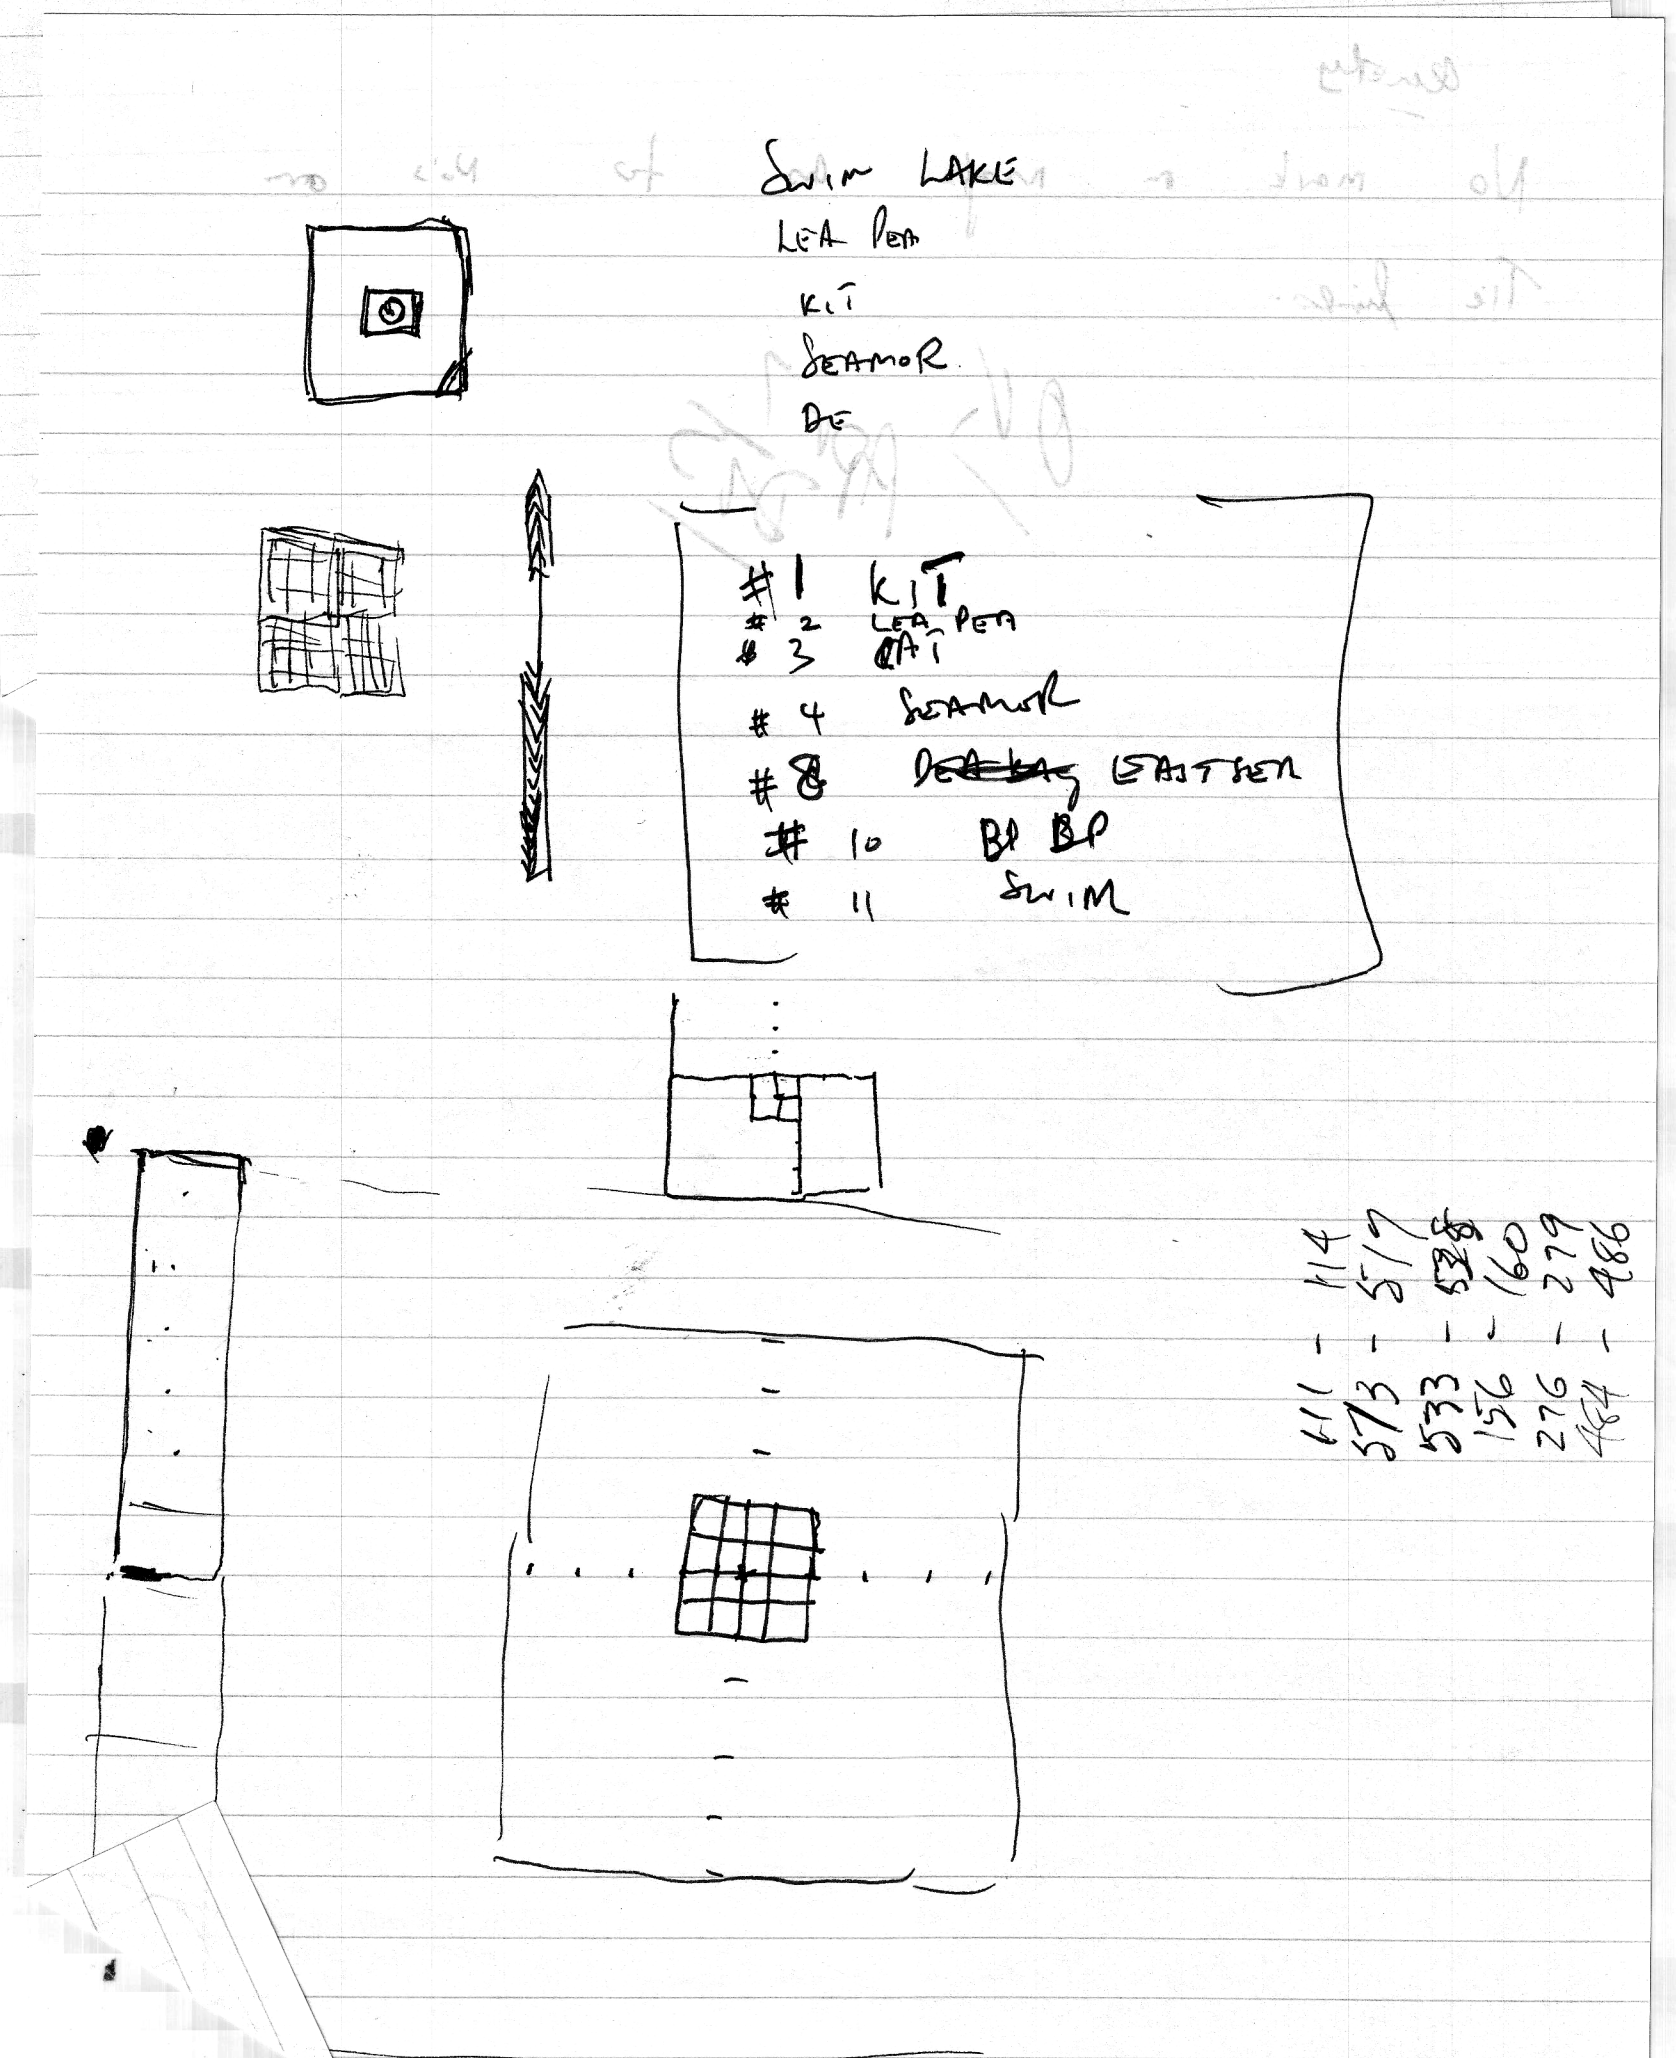 Swim LAKE
LEA PEA
KIT
SEAMOR
DE
# 1 KIT
# 2 LEA PEA
# 3 CAT
# 4 SEAMOR
# 8 EAITSER
# 10 BP BP
# 11 SWIM
111 - 114
513 - 517
533 - 538
156 - 160
276 - 279
484 - 486